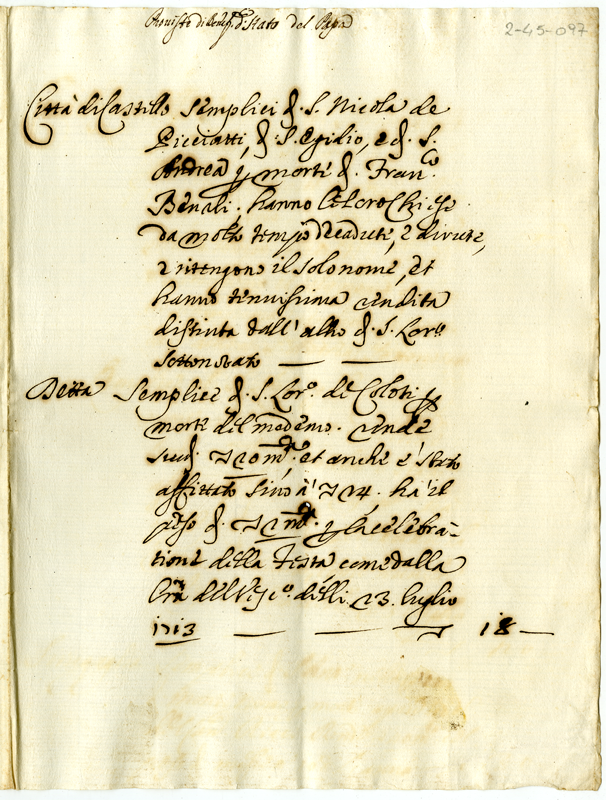 Provista di Benef. d. Stato del Papa
2-45-097
Città di Castello Semplici d. S. Nicola de
Picciatti, d. S. Egidio, e d. S.
Andrea p. morte d. Fran.co
Benali. hanno le lor Chiese
da molto tempo decadute, e dirute,
e ritengono il solo nome, et
hanno tenuissima rendita
distinta dall' altro d. S. Lor.o
sottonotato
Detta Semplice d. S. Lor.o de Coloti p.
morte del medemo. rende
scudi 10 m.ta, et anche è stato
affittato sino à 14. ha il
peso d. 2 m.ta p. la celebra-
tione della festa come dalla
lr̃a del Vesc.o delli 23. luglio
1713 18